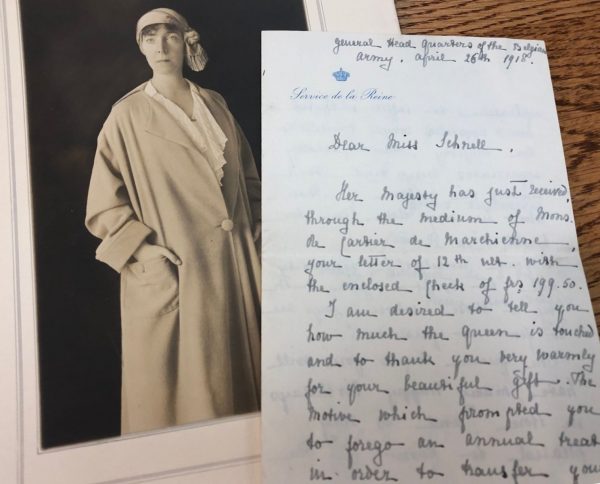 general Head Quarters of the Belgian
Army. April 26th 1918.
Service de la Reine
Dear Miss Schnell,
Her Majesty has just received,
through the medium of Mons.
de Cartier de Marchienne,
your letter of 12th ult. with
the enclosed check of frs 199.50.
I am desired to tell you
how much the Queen is touched
and to thank you very warmly
for your beautiful gift. The
motive which prompted you
to forego an annual treat
in order to transfer your